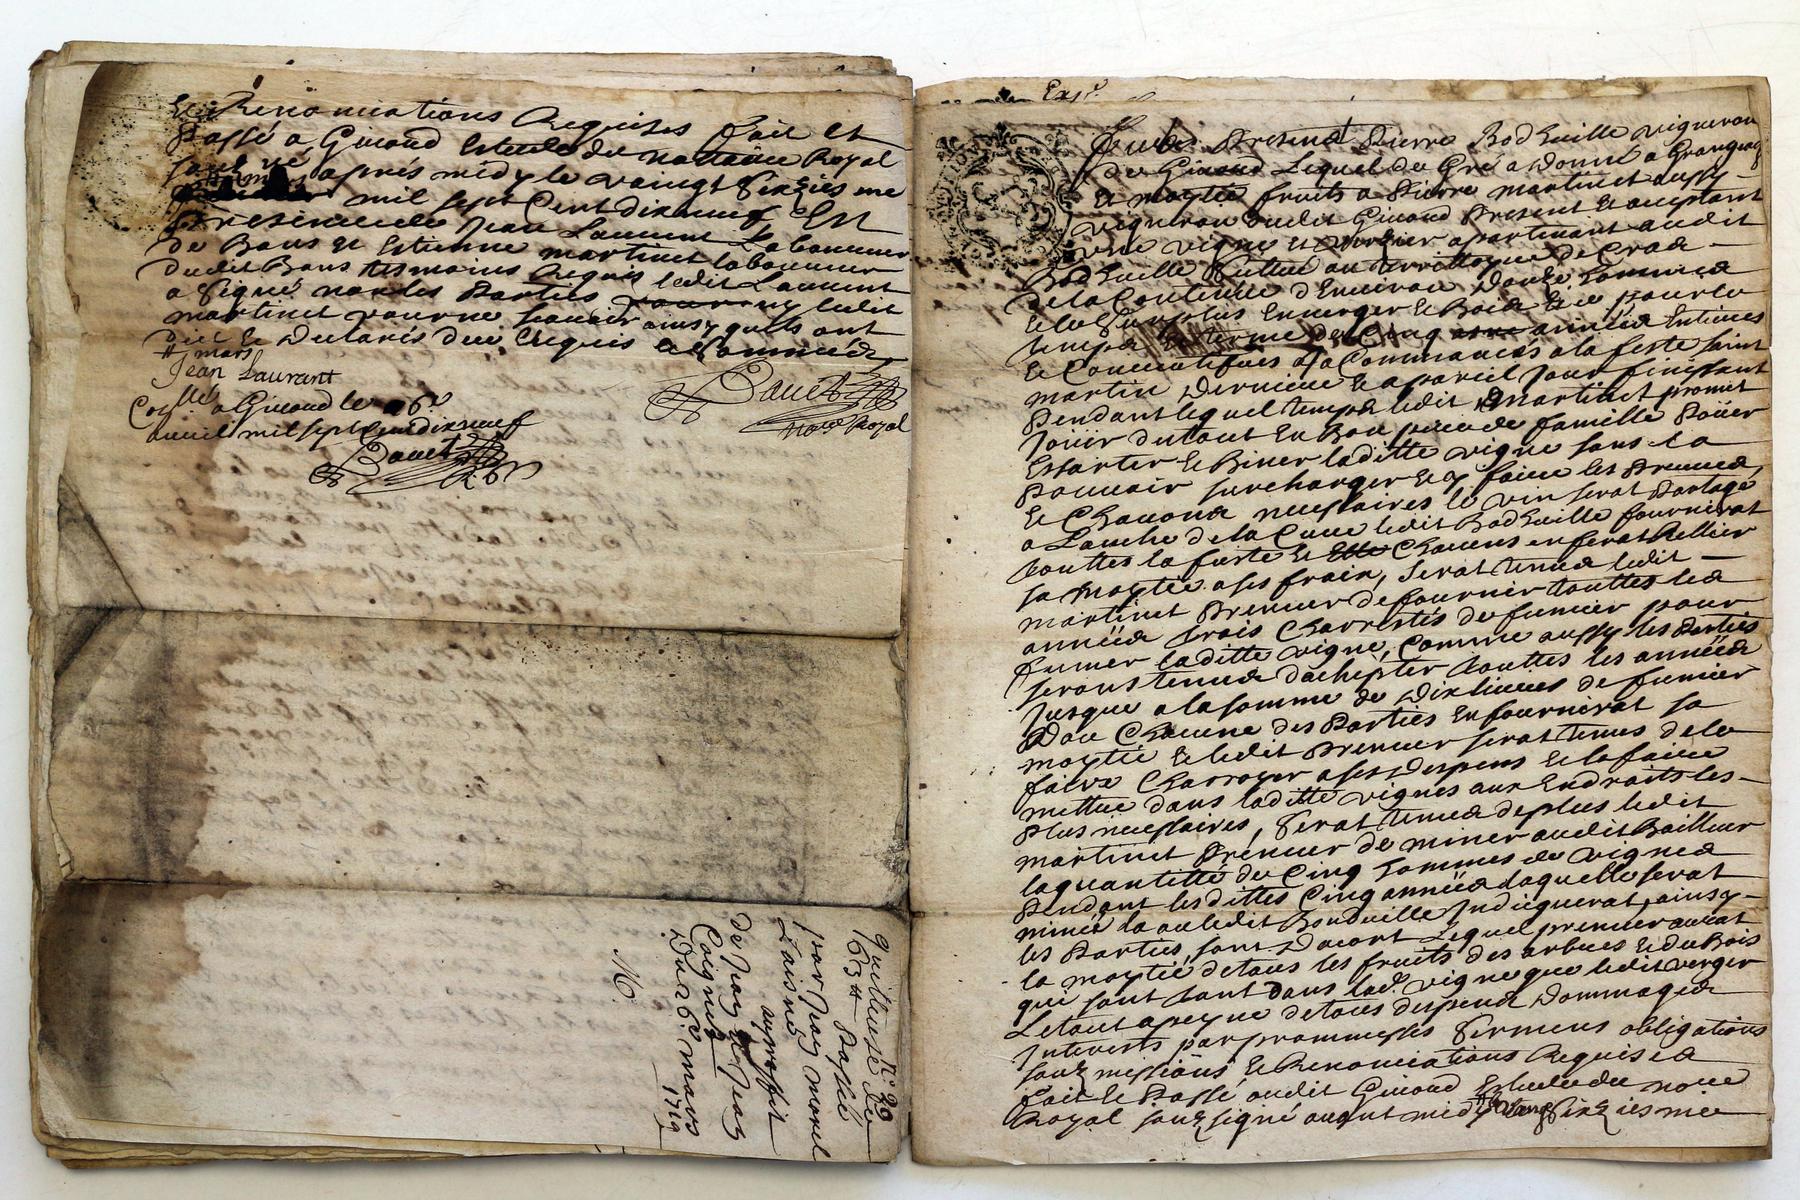 Et Renonciations Requises fait et
Passé a Giroud Estude du nottaire Royal
soubsigné apres midy le vaingt Sixziesme
mil sept Cent dixneuf En
Presence de Jean Laurent Laboureur
de Bans et Estienne martinet laboureur
dudit Bans tesmoins Requis ledit Laurent
a Signé non les Parties ny ledit
martinet pour ne scavoir ainsy quils ont
dict et Declarés de ce Enquis et Sommés
# mars
Jean Laurant
Coll.é a Giroud le 26e
avril mil sept cent dixneuf
Not.re Royal
n° 29
Quittance de
163 # Passé
par Jean morel
Laisné
au proffit
de Jean de Jean
Coignet
Du 26e mars
1719
M.
Exp.é
Fut Present Pierre Bodhuille vigneron
de Giroud Lequel de Gré a Donné a Grangeage
et moytié fruits a Pierre martinet aussy
vigneron dudit Giroud Present et acceptant
une vigne et verger apartenant audit
Bodhuille Scittué au territtoire de Cra
de la Contenüe d'Environ Douze hommes
et le Surplus En verger et Bois et ce pour le
temps et terme de Cinq années Entieres
et Consecutives a Commancés a la feste saint
martin Derniere et a pareil Jour finissant
Pendant lequel temps ledit martinet promet
Joüir du tout En Bon pere de famille Poüer
Essarter et Biner laditte vigne sans la
Pouvoir surcharger et y faire les Preuves
et Chavons necessaires le vin serat Partagé
a Lanche de la Cuve ledit Bodhuille fournirat
touttes la fuste et Chacuns en ferat Rellier
sa moytié a ses frais, Serat tenus ledit
martinet Preneur de fournir touttes les
années trois Charrettés de fumier pour
fumer laditte vigne, Comme aussy les Parties
serons tenus d'achepter touttes les années
Jusque a la somme de Dix livres de fumier
Don Chacune des Parties En fournirat sa
moytié et ledit Preneur serat tenus de le
faire Charroyer a ses Despens et le faire
mettre dans laditte vignes aux Endroits les
plus necessaires, Serat tenus de plus ledit
martinet Preneur de miner audit Bailleur
la quantitté de Cinq hommes de vignes
Pendant les dittes Cinq années laquelle serat
minée la ou ledit Bonduille Indiquerat, ainsy
les Parties sont Dacort Lequel preneur aurat
la moytié de tous les fruits des arbres et du Bois
qui sont tant dans lad.e vigne que ledit verger
Le tout a peyne de tous despens Dommages
Interests par prommesses Sermens obligations
soubmissions et Renonciations Requises
fait et Passé audit Giroud Estude du no.re
Royal soubsigné avant midy le vingt Sixziesme